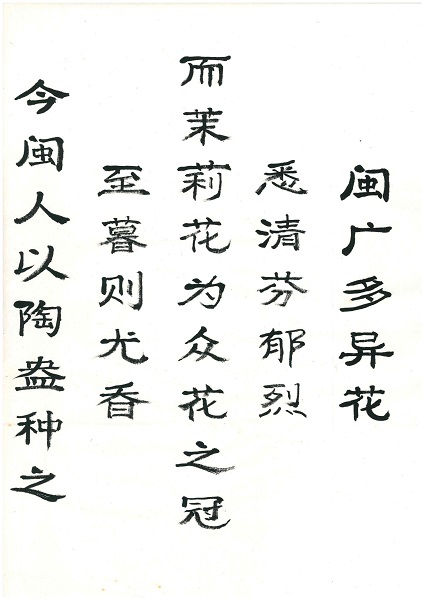 闽广多异花
悉清芬郁烈
而茉莉花为众花之冠
至暮则尤香
今闽人以陶盎种之